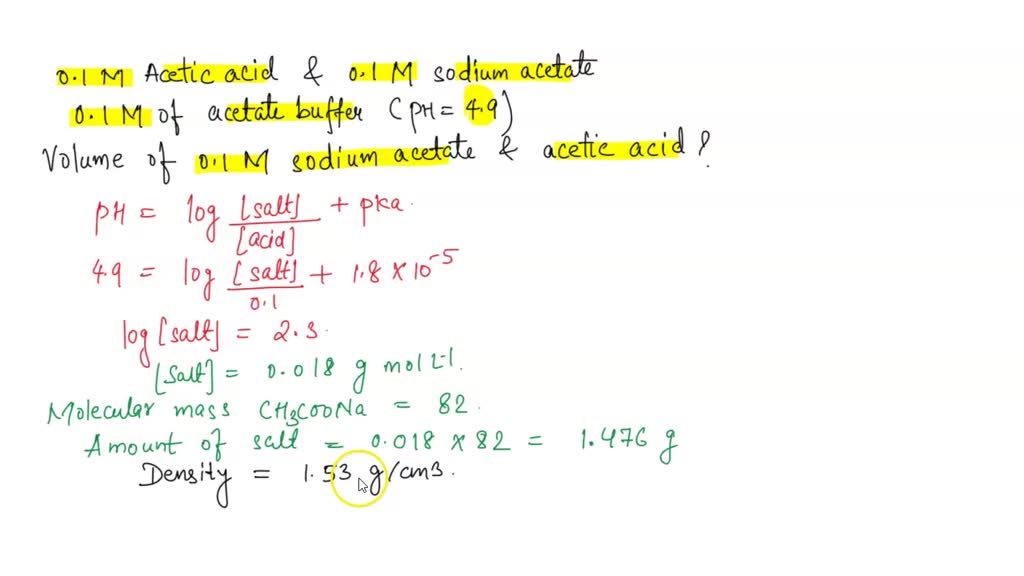 0.1 M Acetic acid & 0.1 M sodium acetate
0.1 M of acetate buffer (pH = 4.9)
Volume of 0.1 M sodium acetate & acetic acid?
pH = log [salt]/[acid] + pka.
4.9 = log [salt]/0.1 + 1.8 x 10^-5
log [salt] = 2.3.
[Salt] = 0.018 g mol L-1.
Molecular mass CH3COONa = 82.
Amount of salt = 0.018 x 82 = 1.476 g
Density = 1.53 g/cm3.